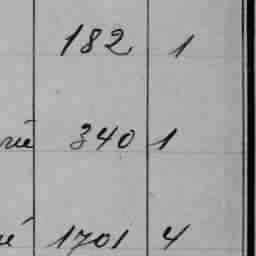 182 1
340 1
1701 4